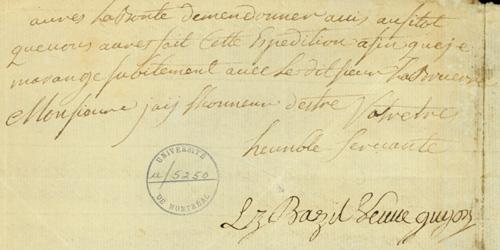 aures la bonte demendonner auis ausitot
quevous aures fait Cette Expedition afin queje
marange subitement avec Ledit sieur
Monsieure jaij lhonneur destre Votretres
heumble Servante
UNIVERSITÉ
u/5250
DE MONTRÉAL
Lz Bazil Veuue guyon